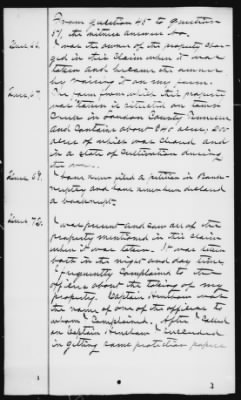 From question 45 to question
57, the witness answers No.
Ques. 66. I was the owner of the property char-
ged in this claim when it was
taken and became the owner
by raising it on my farm.
Ques. 67. The farm from which this property
was taken is situated on
Creek in Loudon County Tennessee
and contains about 240 acres, 200
acres of which was cleared and
in a state of cultivation during
the war.
Ques. 69. I have never filed a petition in Bank-
ruptcy and have never been declared
a bankrupt.
Ques. 72. I was present and saw all of the
property mentioned in this claim
when it was taken. It was taken
both in the night and day time.
I frequently complained to the
officers about the taking of my
property. Captain was
the name of one of the officers to
whom I complained. After I called
on Captain I succeeded
in getting some protection papers
1
3